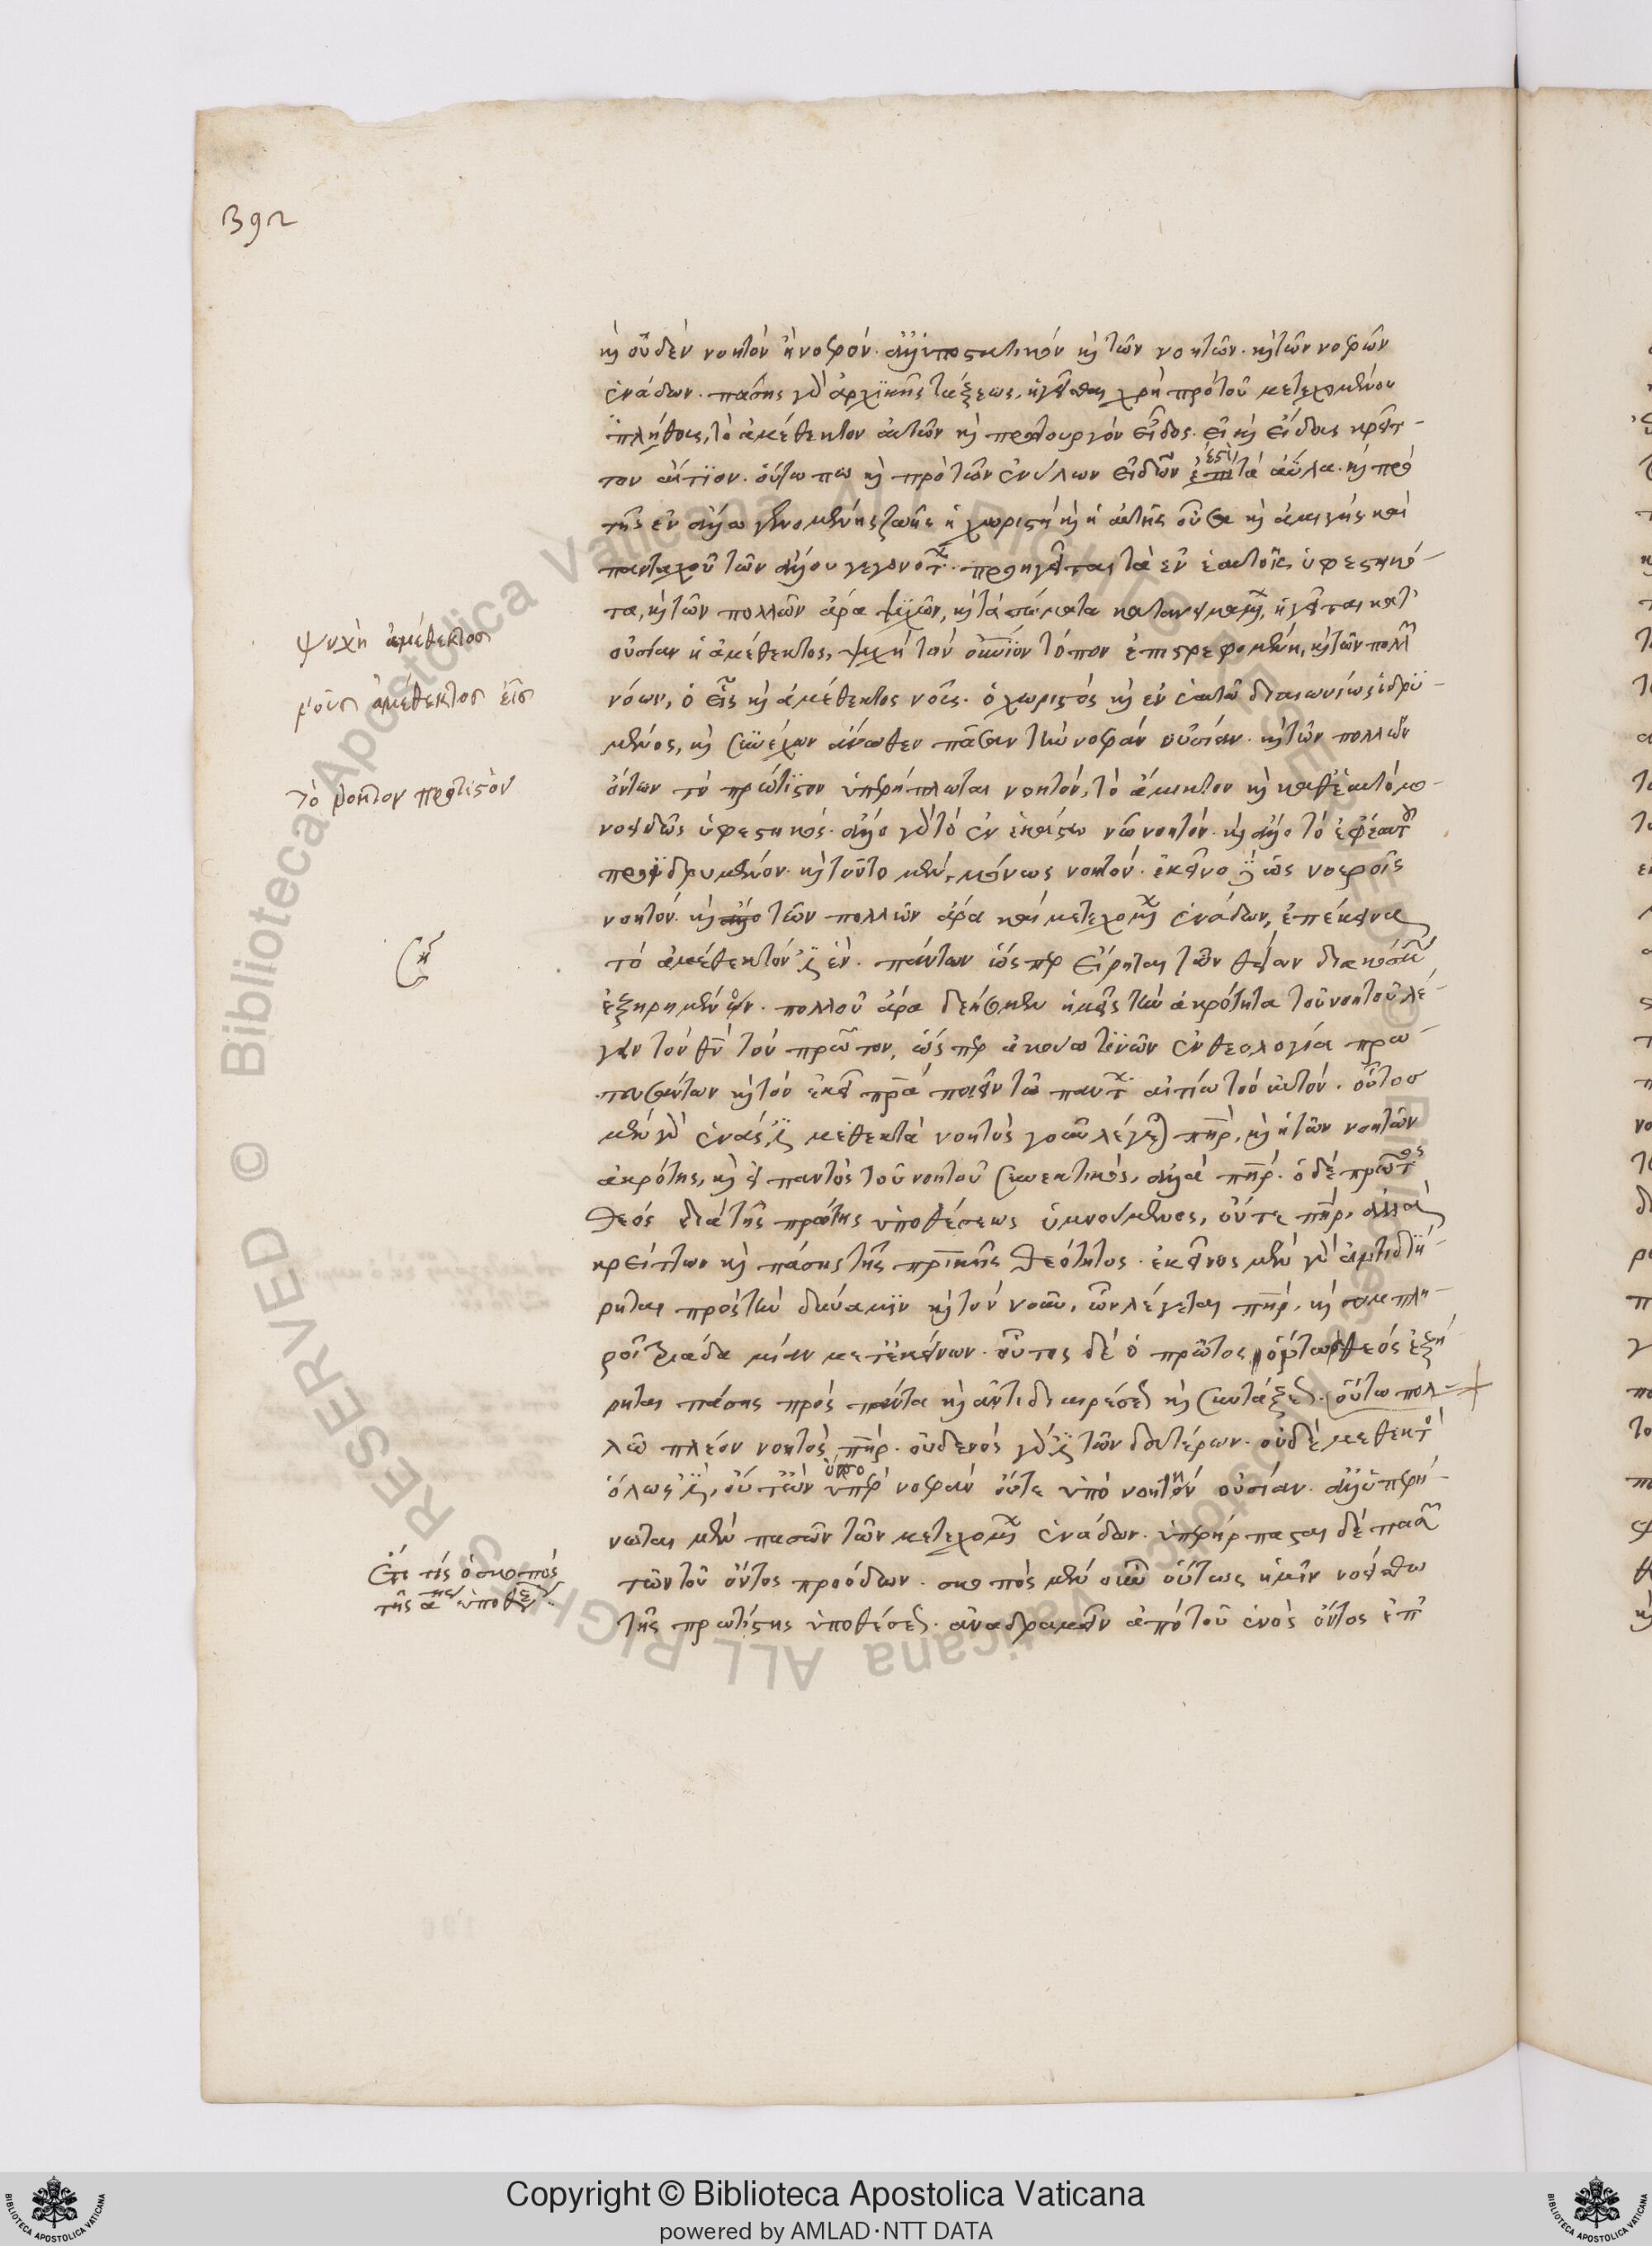 392
καὶ οὐδὲν νοητὸν ἢ νοερόν. ἀλλ' ὑποστατικὸν καὶ τῶν νοητῶν. καὶ τῶν νοερῶν
ἑνάδων. πάσης γὰρ ἀρχικῆς τάξεως, ἡγεῖσθαι χρὴ πρὸ τοῦ μετεχομένου
πλήθους, τὸ ἀμέθεκτον αὐτῶν καὶ πρωτουργὸν εἶδος. εἰ καὶ εἴδους κρεῖτ-
τον αἴτιον. οὕτω που καὶ πρὸ τῶν ἐνύλων εἰδῶν ἐστὶ τὰ ἄϋλα. καὶ πρὸ
τῆς ἐν ἄλλῳ γενομένης ζωῆς ἡ χωριστὴ καὶ ἡ αὑτῆς οὖσα καὶ ἀμιγής καὶ
πανταχοῦ τῶν ἄλλου γεγονότων. προηγεῖται τὰ ἐν ἑαυτοῖς ὑφεστηκό-
τα, καὶ τῶν πολλῶν ἄρα ψυχῶν, καὶ τὰ σώματα κατανειμαμένων, ἡγεῖται κατ'
οὐσίαν ἡ ἀμέθεκτος, ψυχὴ τὸν οὐράνιον τόπον ἐπιστρεφομένη, καὶ τῶν πολλῶν
νόων, ὁ εἷς καὶ ἀμέθεκτος νοῦς. ὁ χωριστὸς καὶ ἐν ἑαυτῷ διαιωνίως ἱδρυ-
μένος, καὶ συνέχων ἄνωθεν πᾶσαν τὴν νοερὰν οὐσίαν. καὶ τῶν πολλῶν
ὄντων τὸ πρώτιστον ὑπερήπλωται νοητόν, τὸ ἄμικτον καὶ καθ' ἑαυτὸ μο-
νοειδῶς ὑφεστηκός. ἄλλο γὰρ τὸ ἐν ἑκάστῳ νῷ νοητόν. καὶ ἄλλο τὸ ἐφ' ἑαυτοῦ
προϊδρυμένον. καὶ τοῦτο μὲν, μόνως νοητόν. ἐκεῖνο δὲ ὡς νοεροῖς
νοητόν. καὶ τῶν πολλῶν ἄρα καὶ μετεχομένων ἑνάδων, ἐπέκεινα
τὸ ἀμέθεκτόν ἐστιν ἕν. πάντων ὥσπερ εἴρηται τῶν θείων διακόσμων
ἐξῃρημένον. πολλοῦ ἄρα δεήσομεν ἡμεῖς τὴν ἀκρότητα τοῦ νοητοῦ λέ-
γειν τὸν θεὸν τὸν πρῶτον, ὥσπερ ἀκούω τινῶν ἐν θεολογίᾳ πρω-
τευσάντων καὶ τὸν ἐκεῖ πατέρα ποιεῖν τῷ πάντων αἰτίῳ τὸν αὐτόν. οὗτος
μὲν γὰρ ἑνάς ἐστι μεθεκτὴ νοητὸς γοῦν λέγεται πατήρ, καὶ ἡ τῶν νοητῶν
ἀκρότης, καὶ εἰ παντὸς τοῦ νοητοῦ συνεκτικὸς, ἀλλὰ πατήρ. ὁ δὲ πρῶτος
θεὸς διὰ τῆς πρώτης ὑποθέσεως ὑμνούμενος, οὔτε πατήρ, ἀλλὰ
κρείττων καὶ πάσης τῆς πατρικῆς θεότητος. ἐκεῖνος μὲν γὰρ ἀντιδιῄ-
ρηται πρὸς τὴν δύναμιν καὶ τὸν νοῦν, ὧν λέγεται πατήρ, καὶ συμπλη-
ροῖ τριάδα μίαν μετ' ἐκείνων. οὗτος δὲ ὁ πρῶτος ὄντως θεὸς ἐξῄ-
ρηται πάσης πρὸς πάντα καὶ ἀντιδιαιρέσεως καὶ συντάξεως. οὕτω πολ-
λῷ πλέον νοητὸς πατήρ. οὐδενὸς γάρ ἐστι τῶν δευτέρων. οὐδὲ μεθεκτὸς
ὅλως ἐστὶν, οὔτε ὑπὸ νοερῶν οὔτε ὑπὸ νοητῶν οὐσιῶν. ἀλλ' ὑπερή-
νωται μὲν πασῶν τῶν μετεχομένων ἑνάδων. ὑπερήρπασται δὲ πασῶν
τῶν τοῦ ὄντος προόδων. σκοπὸς μὲν οὖν οὕτως ἡμῖν νοείσθω
τῆς πρωτίστης ὑποθέσεως. ἀναδραμεῖν ἀπὸ τοῦ ἑνὸς ὄντος ἐπ'
ψυχὴ ἀμέθεκτος
νοῦς ἀμέθεκτος εἷς
τὸ νοητὸν πρώτιστον
ση
ἔτι τίς ὁ σκοπός
τῆς αης ὑποθέσεως